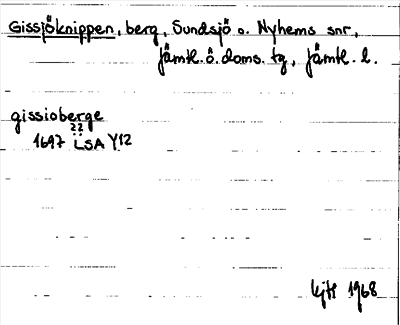 Gissjöknippen, berg, Sundsjö o. Nyhems snr,
Jämtl. ö. doms. tg, Jämtl. l.
gissioberge
22
1697 LSA Y12
1968